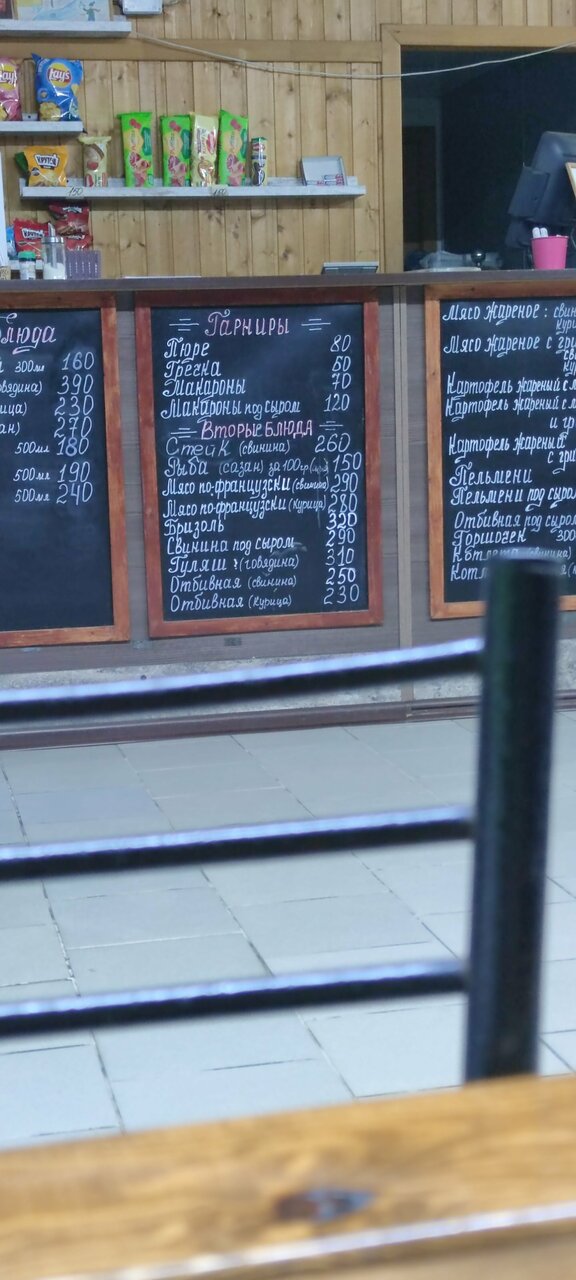 Lay's
КРУТОЙ
150
люда
300мл 160
(говядина) 390
230
270
500мл 180
500мл 190
500мл 240
Гарниры
Пюре 80
Гречка 60
Макароны 70
Макароны под сыром 120
Вторые блюда
Стейк (свинина) 260
Рыба (сазан) за 100гр 150
Мясо по-французски (свинина) 290
Мясо по-французски (курица) 280
Бризоль 320
Свинина под сыром 290
Гуляш (говядина) 310
Отбивная (свинина) 250
Отбивная (курица) 230
Мясо жареное: свин
кури
Мясо жареное с гри
Картофель жареный с м
Картофель жареный с м
и гр
Картофель жареный
с гри
Пельмени
Пельмени под сыро
Отбивная под сыром
Горшочек 300
Котлета (свинина)
Котл